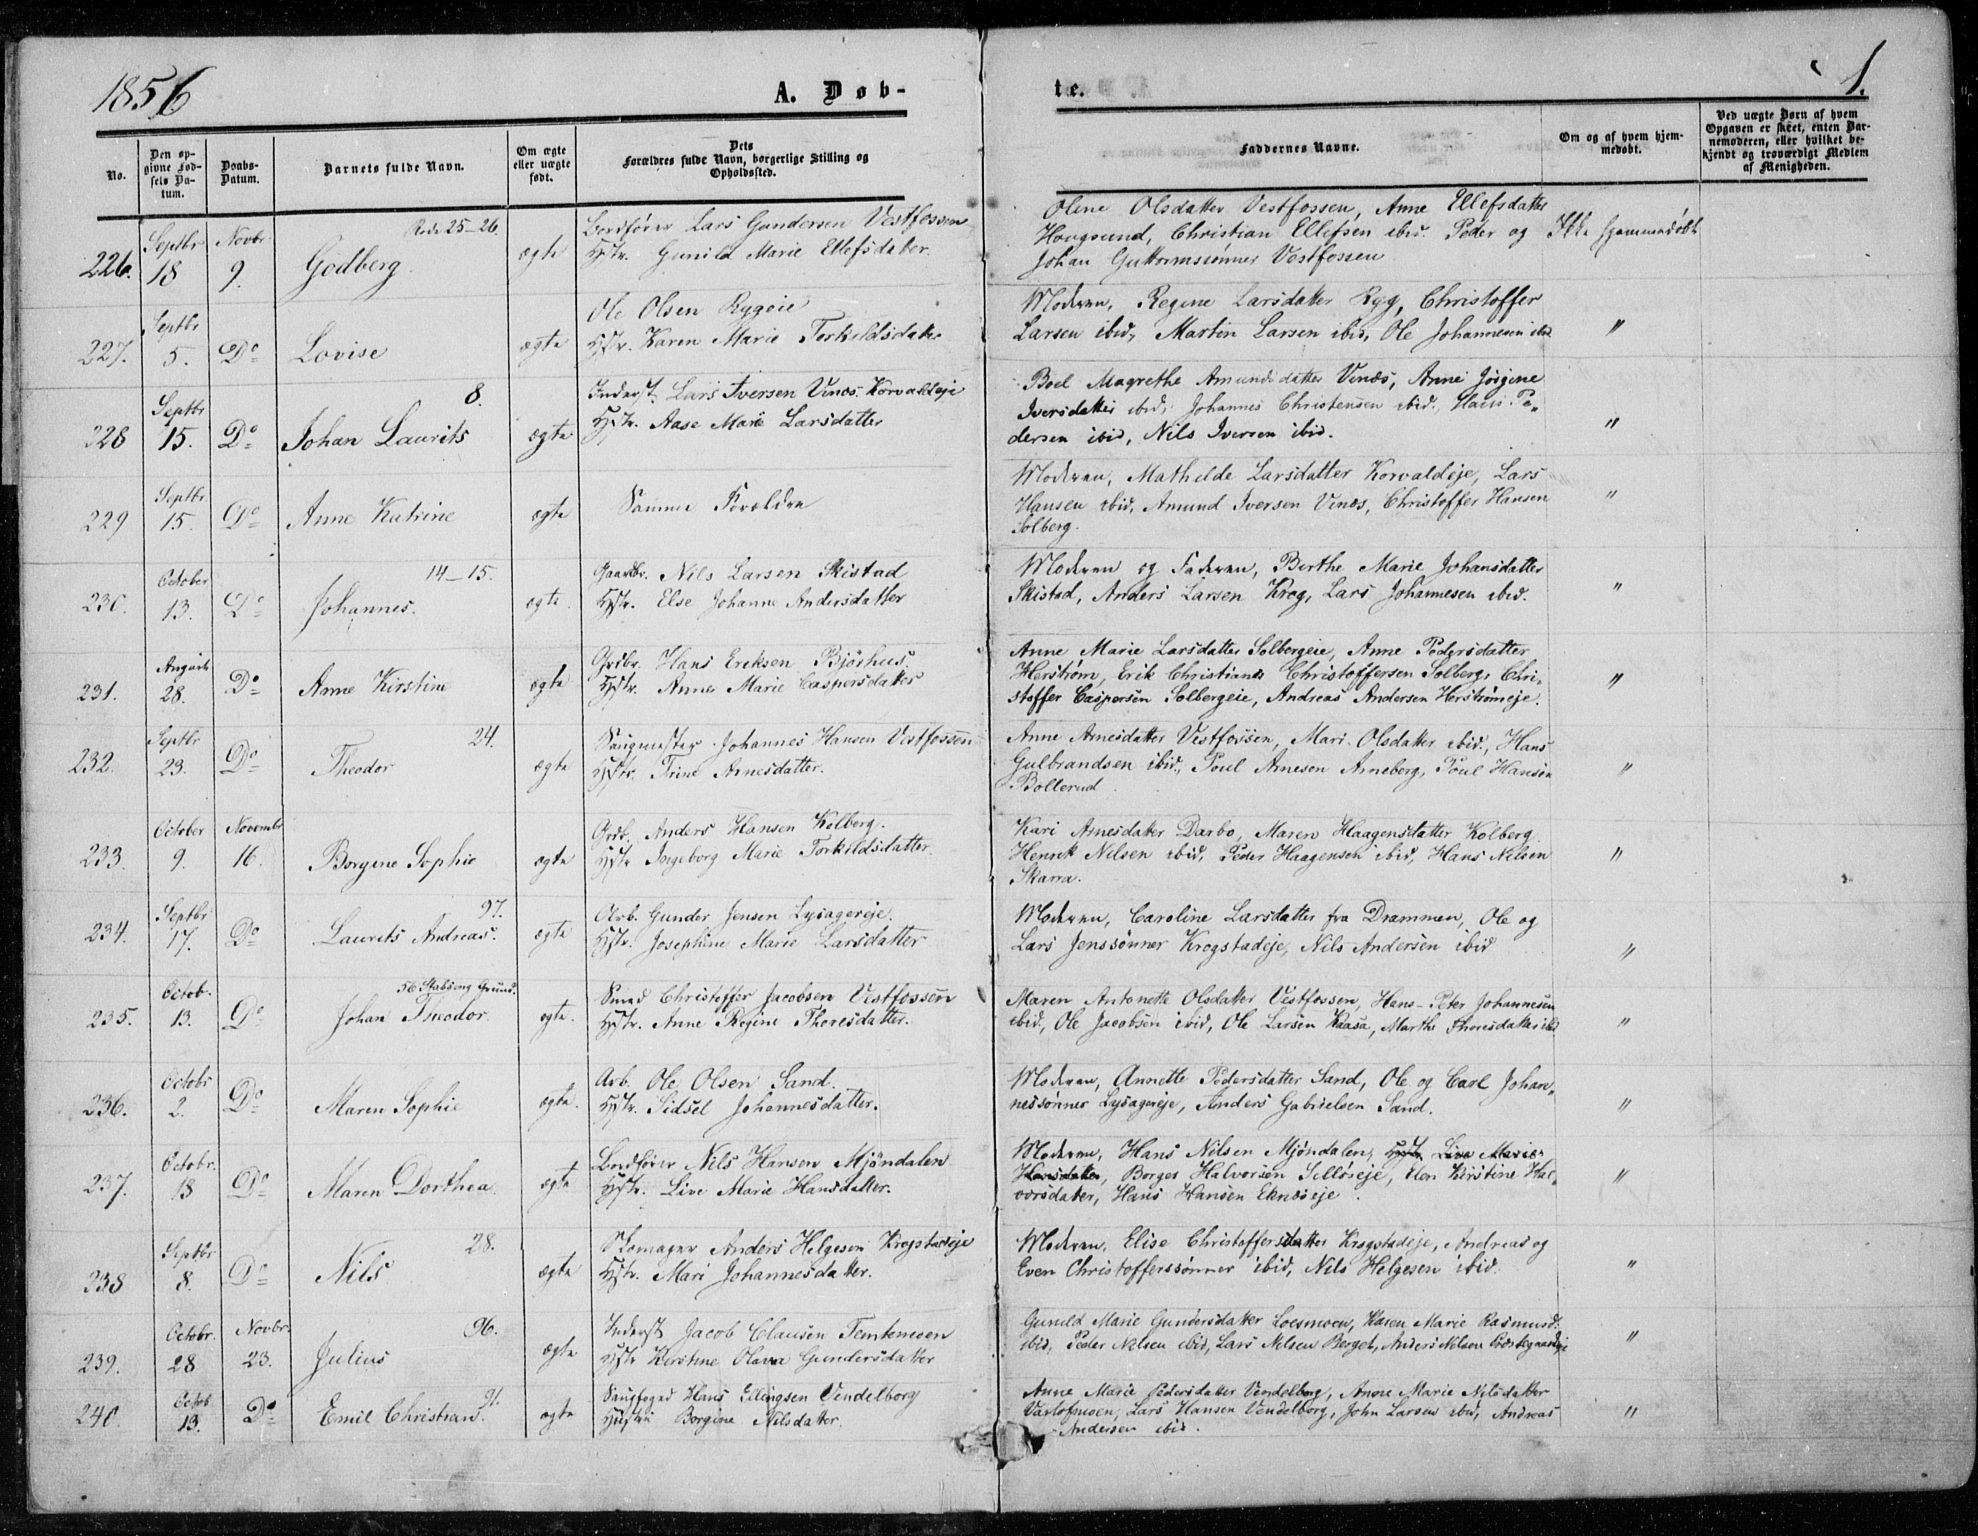 1856
A. Døb-
te.
1.
No.
Den op-
givne Fød-
sels Da-
tum.
Daabs-
Datum.
Barnets fulde Navn.
Om ægte
eller uægte
født.
Dets
Forældres fulde Navn, borgerlige Stilling og
Opholdssted.
Faddernes Navne.
Om og af hvem hjem-
medøbt.
Ved uægte Børn af hvem
Opgaven er skeet, enten Bar-
nemoderen, eller hvilket be-
kjendt og troværdigt Medlem
af Menigheden.
226. Septbr 18 Novbr. 9. 25-26. Godberg. ægte
Bordfører Lars Gundersen Vestfossen
Hstr. Gunild Marie Ellefsdatter.
Oline Olsdatter Vestfossen, Anne Ellefsdatter
Hougsund, Christian Ellefsen ibid. Peder og
Johan Guttormssønner Vestfossen
Ikke hjemmedøbt
227. Septbr 5. Do Lovise ægte
Ole Olsen Rygeie
Hstr. Karen Marie Torkildsdatter
Moderen, Regine Larsdatter Ryg, Christoffer
Larsen ibid, Martin Larsen ibid, Ole Johannesen ibid
"
228 Septbr 15. Do 8. Johan Laurits ægte
Inderst. Lars Iversen Vinæs. Korvaldeje
Hstr. Aase Marie Larsdatter
Boel Magrethe Amundsdatter Vinæs, Anne Jørgine
Iversdatter ibid, Johannes Christensen ibid., Hans Pe-
dersen ibid, Nils Iversen ibid.
"
229 Septbr. 15. Do Anne Katrine ægte
Samme Forældre
Moderen, Mathilde Larsdatter Korvaldeje, Lars
Hansen ibid, Amund Iversen Vinæs, Christoffer Hansen
Solberg.
"
230. October 13. Do 14-15. Johannes. ægte.
Gaardbr. Nils Larsen Skistad
Hstr. Else Johanne Andersdatter
Moderen og Faderen, Berthe Marie Johansdatter
Skistad, Anders Larsen Krog, Lars Johannesen ibid.
"
231. August 28. Do Anne Kirstine ægte
Grdbr. Hans Eriksen Bjørhus.
Hstr. Anne Marie Caspersdatter
Anne Marie Larsdatter Solbergeie, Anne Pedersdatter
Herstrøm, Erik Christians Christoffersen Solberg, Chri-
stoffer Caspersen Solbergeie, Andreas Andersen Herstrømeje.
"
232. Septbr 23. Do 24. Theodor ægte
Saugmester Johannes Hansen Vestfossen
Hstr. Trine Arnesdatter.
Anne Arnesdatter Vestfossen, Mari Olsdatter ibid., Hans
Gulbrandsen ibid., Poul Arnesen Arneberg, Poul Hansen
Bollerud.
"
233. October 9. Novembr 16. Borgine Sophie ægte
Grdb. Anders Hansen Kolberg.
Hstr Ingeborg Marie Torkildsdatter.
Kari Arnesdatter Darbo, Maren Haagensdatter Kolberg
Henrik Nilsen ibid, Peder Haagensen ibid, Hans Nilsen
Skarra.
"
234. Septbr 17. Do 97. Laurits Andreas. ægte
Arb. Gunder Jensen Lysagereje.
Hstr. Josephine Marie Larsdatter
Moderen, Caroline Larsdatter fra Drammen, Ole og
Lars Jenssønner Krogstadeje, Nils Andersen ibid
"
235. Octob. 13. Do 56 Stabseng Grund. Johan Theodor. ægte.
Smed Christoffer Jacobsen Vestfossen
Hstr. Anne Regine Thoresdatter.
Maren Antonette Olsdatter Vestfossen, Hans-Peter Johannesen
ibid., Ole Jacobsen ibid, Ole Larsen Kaasa, Marthe Thoresdatter ibid
"
236. Octobr 2. Do Maren Sophie ægte.
Arb. Ole Olsen Sand.
Hstr. Sidsel Johannesdatter.
Moderen, Annette Pedersdatter Sand, Ole og Carl Johan-
nessønner Lysagereje, Anders Gabrielsen Sand.
"
237. Octobr. 18 Do Maren Dorthea ægte
Bordfører Nils Hansen Mjøndalen
Hstr. Live Marie Hansdatter.
Moderen, Hans Nilsen Mjøndalen, Hstr. Live Marie
Hansdatter, Borger Halvorsen Selløreje, Elen Kirstine Hal-
vorsdatter, Hans Hansen Eknæseje.
"
238 Septbr 8. Do 28. Nils ægte
Skomager Anders Helgesen Krogstadeje
Hstr. Mari Johannesdatter.
Moderen, Elise Christoffersdatter Krogstadeje, Andreas og
Even Christofferssønner ibid, Nils Helgesen ibid.
"
239. Octobr. 28 Novbr. 23. 96. Julius ægte
Inderst Jacob Clausen Temtemoen
Hstr Kirstine Olava Gundersdatter
Gunild Marie Gundersdatter Loesmoen, Karen Marie Rasmusd.
ibid, Peder Nilsen ibid, Lars Nilsen Berget, Anders Nilsen
"
240. Octob 13. Do 91. Emil Christian. ægte
Saugfoged Hans Ellingsen Vendelborg
Hustru Borgine Nilsdatter.
Anne Marie Pedersdatter Vendelborg, Anne Marie Nilsdatter
Lars Hansen Vendelborg, John Larsen ibid, Andreas
Andersen ibid.
"